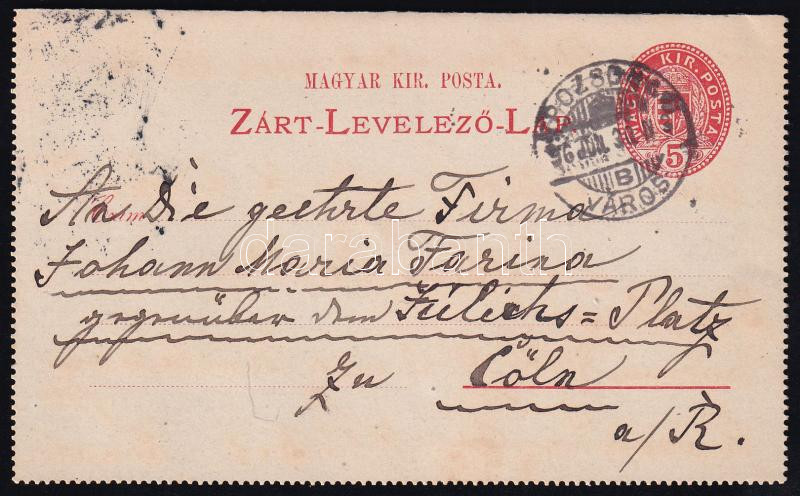 MAGYAR KIR. POSTA.
ZÁRT-LEVELEZŐ-LAP.
MAGYAR KIR. POSTA
5
POZSONY
B
VÁROS
An die geehrte Firma
Johann Maria Farina
gegenüber dem Jülichs=Platz
Zu Cöln
a/R.
darabanth